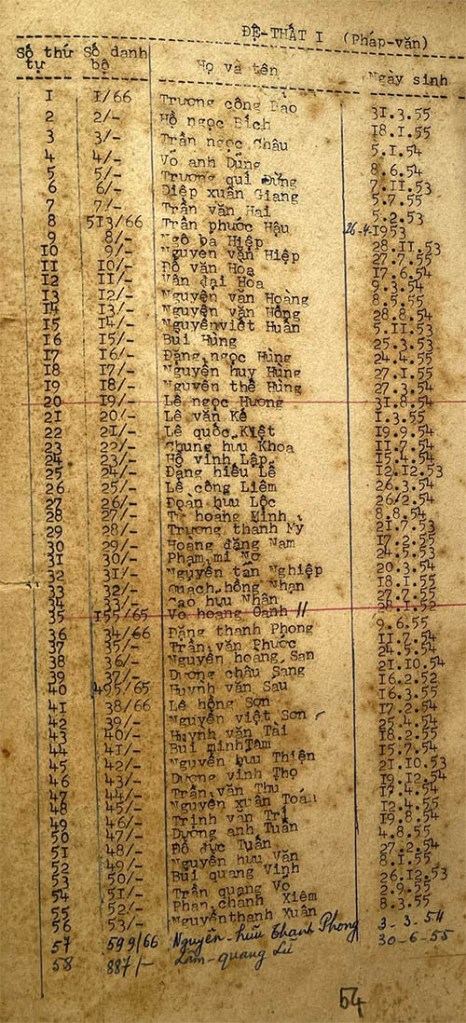 ĐỆ-THẤT I (Pháp-văn)
Số thứ tự Số danh bộ Họ và tên Ngày sinh
I I/66 Trương công Bảo 3I.3.55
2 2/- Hồ ngọc Bích I8.I.55
3 3/- Trần ngọc Châu 5.I.54
4 4/- Võ anh Dũng 8.6.54
5 5/- Trương quí Dũng 7.II.53
6 6/- Diệp xuân Giang 5.7.55
7 7/- Trần văn Hai 5.2.53
8 5I3/66 Trần phước Hậu 26-4-I953
9 8/- Ngô bá Hiệp 28.II.53
I0 9/- Nguyễn văn Hiệp 27.7.55
II I0/- Đỗ văn Hoa I7.6.54
I2 II/- Văn đại Hoa 9.3.54
I3 I2/- Nguyễn văn Hoàng 8.5.55
I4 I3/- Nguyễn văn Hồng 28.8.54
I5 I4/- Nguyễn viết Huấn 5.II.53
I6 I5/- Bùi Hùng 25.3.53
I7 I6/- Đặng ngọc Hùng 24.4.55
I8 I7/- Nguyễn huy Hùng 27.I.55
I9 I8/- Nguyễn thế Hùng 27.3.54
20 I9/- Lê ngọc Hương 3I.8.54
2I 20/- Lê văn Kế I.3.55
22 2I/- Lê quốc Kiệt I9.9.54
23 22/- Chung hưu Khoa II.7.54
24 23/- Hồ vĩnh Lập I5.7.54
25 24/- Đặng hiếu Lê I2.I2.53
26 25/- Lê công Liêm 26.3.54
27 26/- Đoàn hưu Lộc 26/2.54
28 27/- Từ hoàng Minh 8.8.54
29 28/- Trương thanh Mỹ 2I.7.53
30 29/- Hoàng đăng Nam I7.2.55
3I 30/- Phạm mi No 24.5.53
32 3I/- Nguyễn tấn Nghiệp 20.3.54
33 32/- Quách hồng Nhạn I8.I.55
34 33/- Cao hưu Nhân 27.7.55
35 I55/65 Võ hoàng Oanh // 28.I.52
36 34/66 Đặng thanh Phong 9.6.55
37 35/- Trần văn Phước II.7.54
38 36/- Nguyễn hoàng San 24.5.54
39 37/- Dương châu Sang 2I.I0.54
40 495/65 Huỳnh văn Sau I6.2.52
4I 38/66 Lê hồng Sơn I6.3.55
42 39/- Nguyễn viết Sơn I7.2.54
43 40/- Huỳnh văn Tài 25.4.54
44 4I/- Bùi minh Tâm I8.2.55
45 42/- Nguyễn hưu Thiện I5.7.54
46 43/- Dương vinh Thọ 2I.I0.53
47 44/- Trần văn Thu I9.I2.54
48 45/- Nguyễn xuân Toán I7.4.54
49 46/- Trịnh văn Trị I2.4.55
50 47/- Dương anh Tuấn I9.8.54
5I 48/- Đỗ đức Tuấn 4.8.55
52 49/- Nguyễn hưu Văn 27.2.54
53 50/- Bùi quang Vinh 8.I.55
54 5I/- Trần quang Võ 26.I2.53
55 52/- Phan chánh Xiêm 2.9.55
56 53/- Nguyễn thanh Xuân 8.3.55
57 599/66 Nguyễn-hữu Thanh Phong 3-3.54
58 887/- Lâm-quang Lữ 30-6-55
54